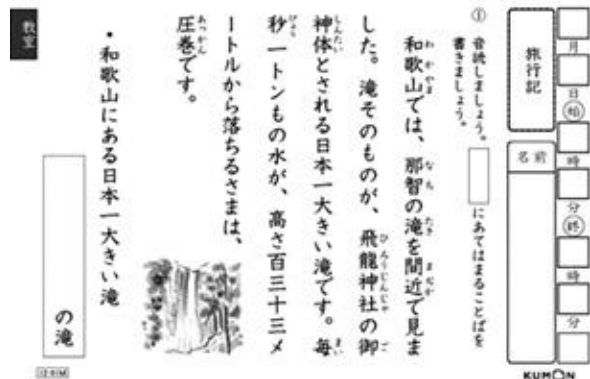 月 日 始 時 分 終 時 分
旅行記
名前
① 音読しましょう。 にあてはまることばを
書きましょう。
わかやま なち たき まぢか
和歌山では、那智の滝を間近で見ま
ひろうじんじゃ ご
した。滝そのものが、飛龍神社の御
しんたい まい
神体とされる日本一大きい滝です。毎
びょう
秒一トンもの水が、高さ百三十三メ
ートルから落ちるさまは、
あっかん
圧巻です。
・和歌山にある日本一大きい滝
の滝
教室
KUMON